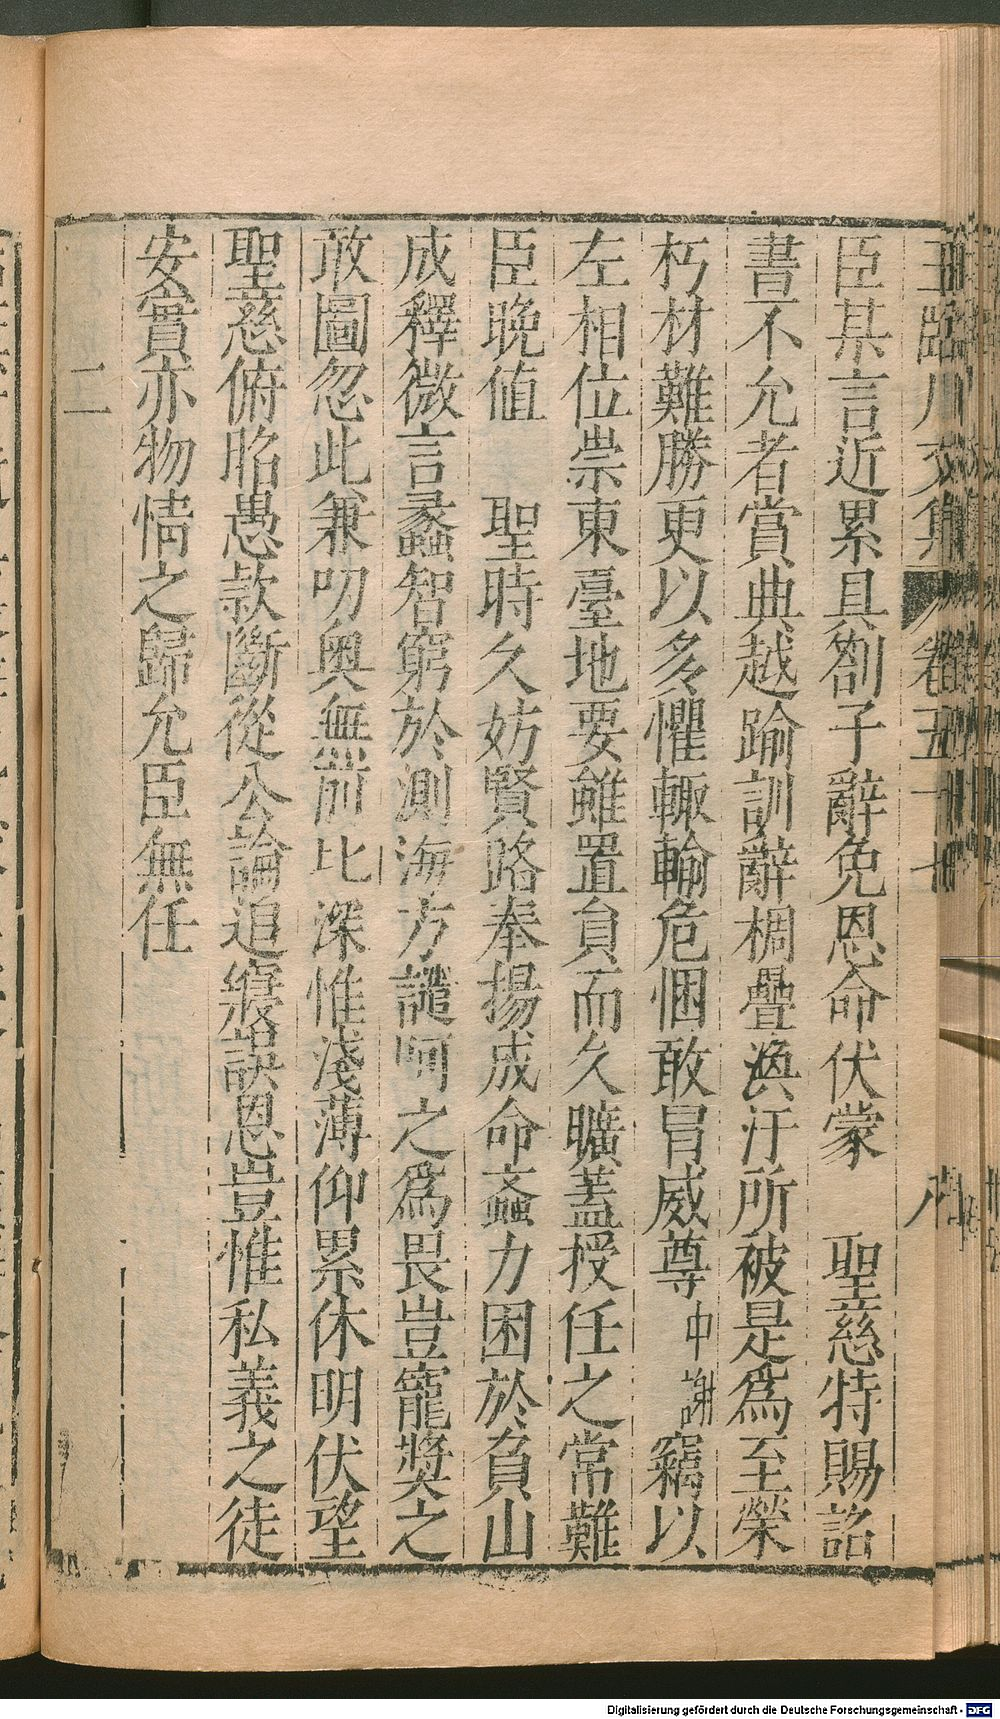 臣某言近累具劄子辭免恩命伏蒙　聖慈特賜詔
書不允者賞典越踰訓辭稠疊渙汗所被是爲至榮
朽材難勝更以多懼輙輸危悃敢冒威尊中謝竊以
左相位崇東臺地要雖置負而久曠蓋授任之常難
臣晚值　聖時久妨賢路奉揚成命螡力困於負山
成釋微言蠡智窮於測海方譴呵之爲畏豈寵奬之
敢圖忽此兼叨奥無前比深惟淺薄仰累休明伏望
聖慈俯昭愚款斷從公論追寢誤恩豈惟私義之徒
安實亦物情之歸允臣無任
二
王臨川文集 卷五十七 八
Digitalisierung gefördert durch die Deutsche Forschungsgemeinschaft - DFG